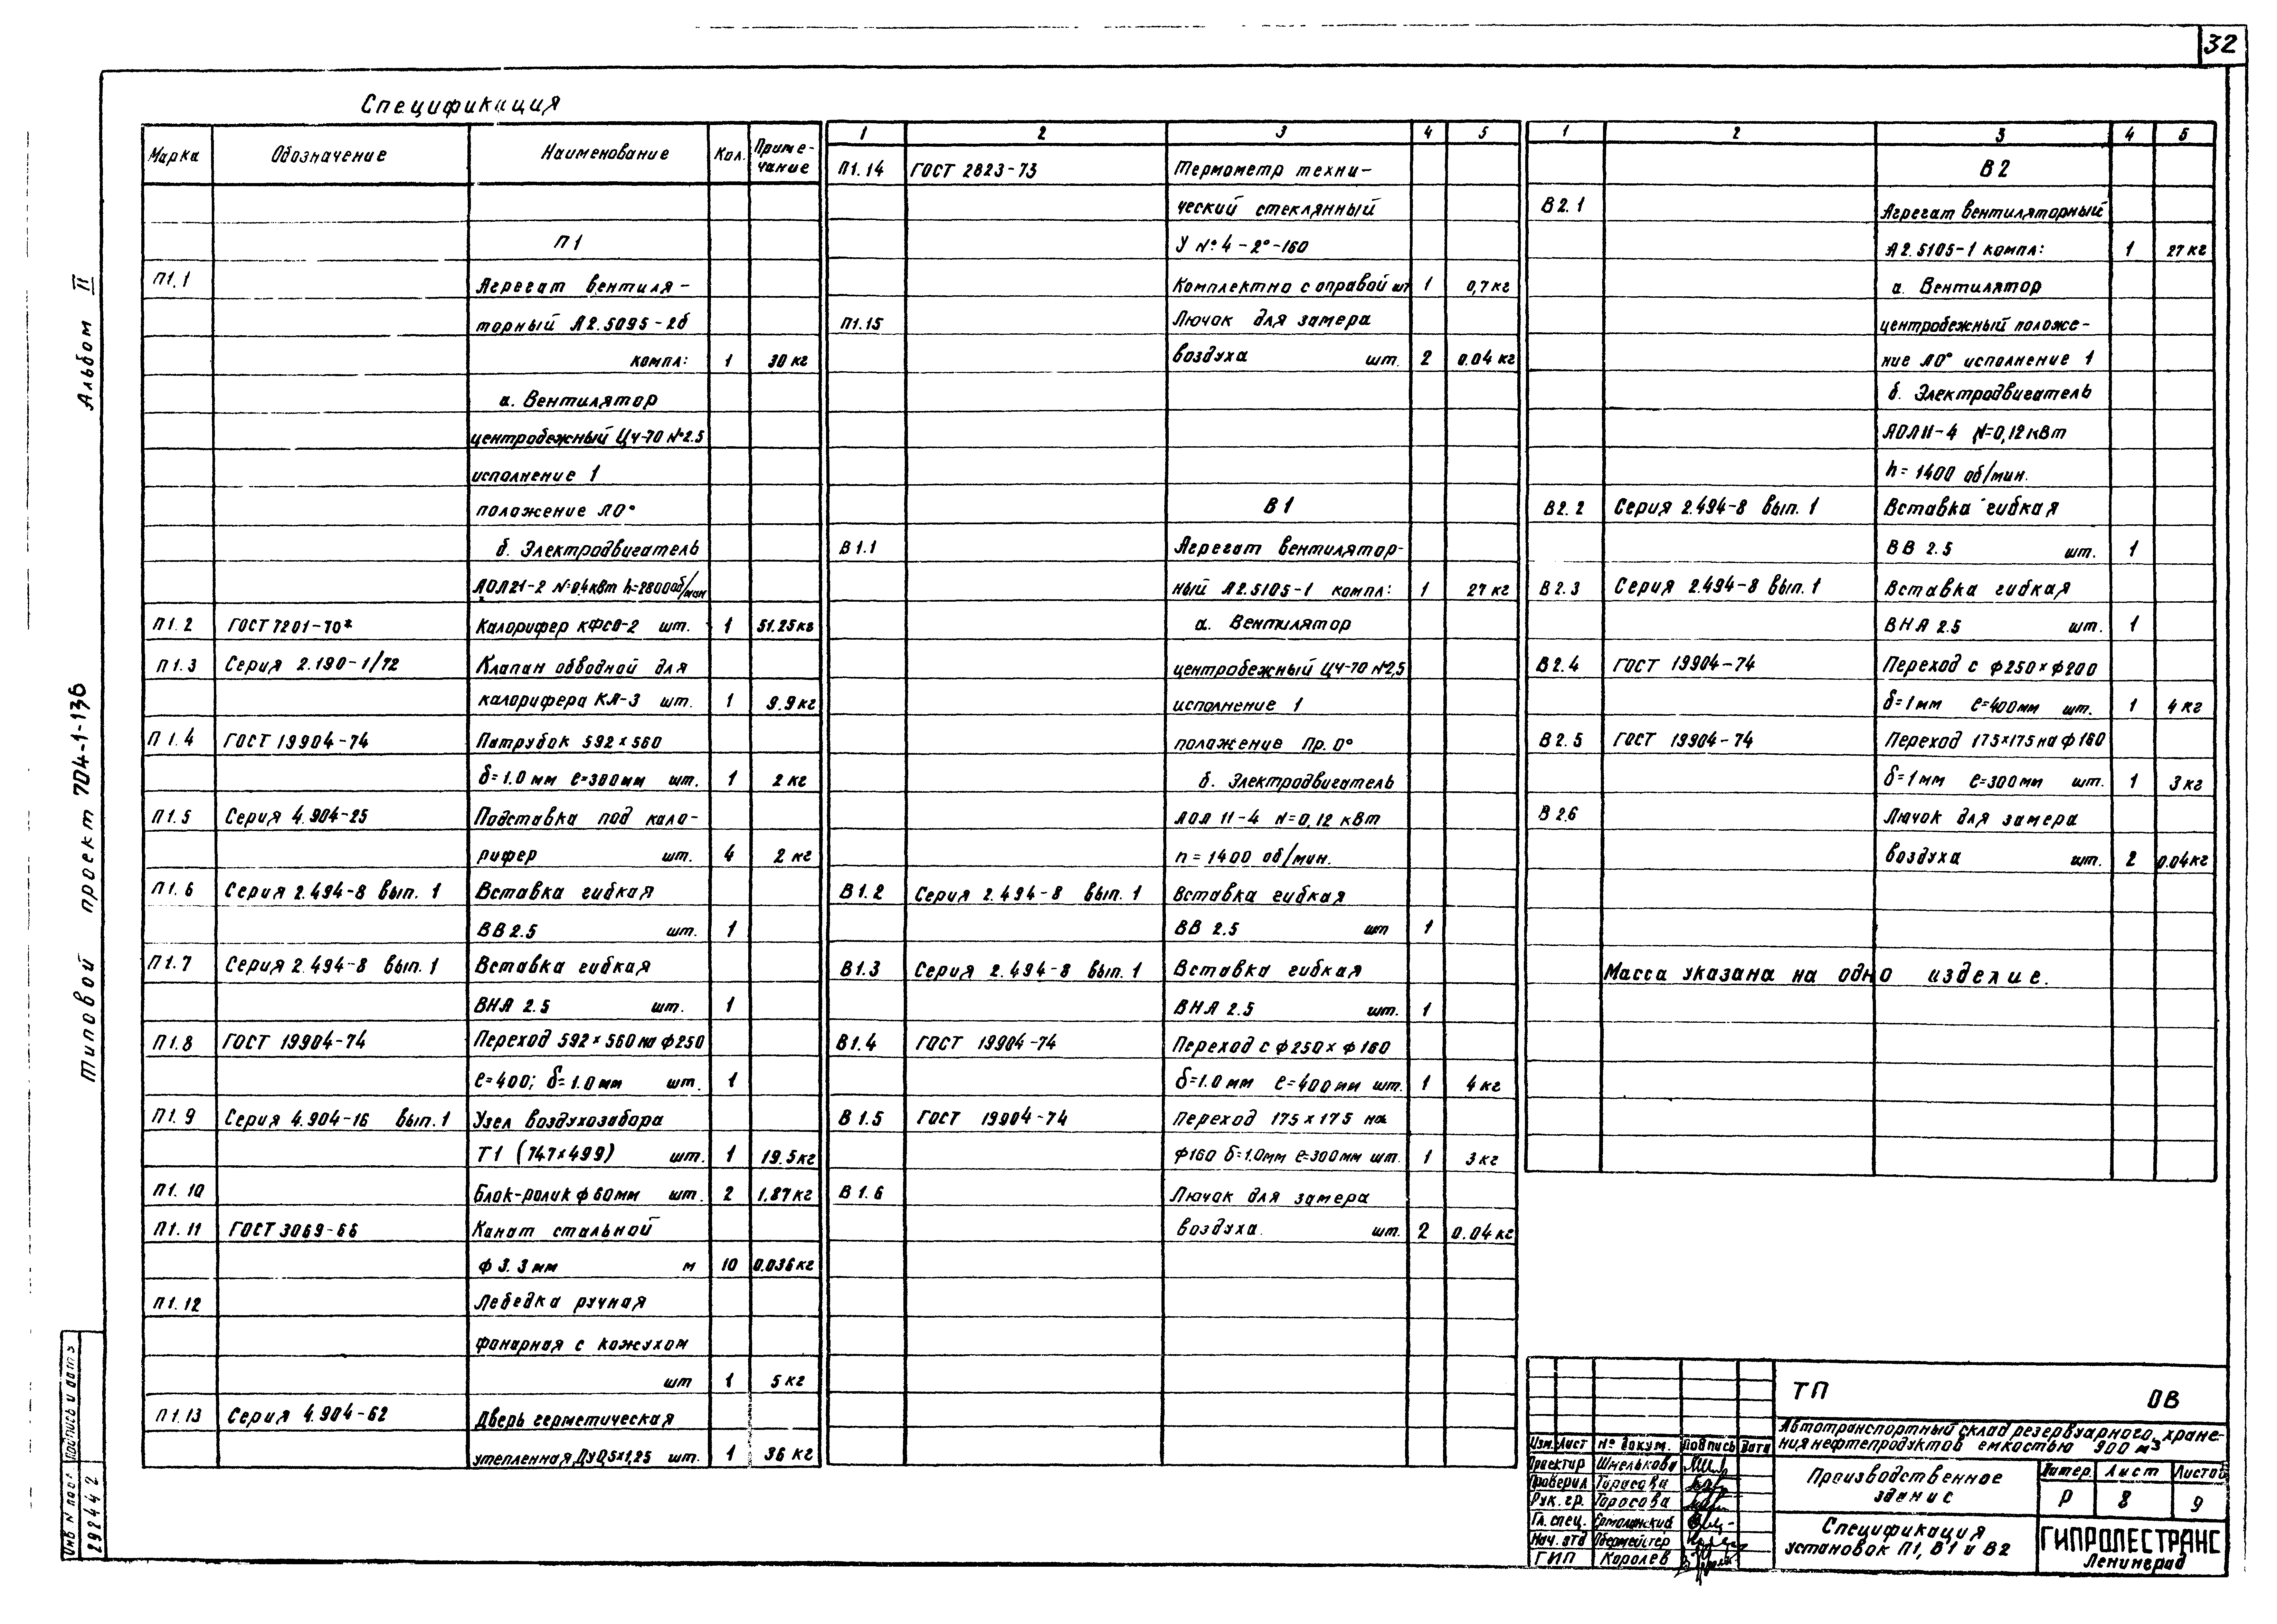 32
Спецификация
Марка Обозначение Наименование Кол. Приме-
чание
П1
П1.1 Агрегат вентиля-
торный А2.5095-2б
компл: 1 30 кг
а. Вентилятор
центробежный Ц4-70 №2.5
исполнение 1
положение Л0°
б. Электродвигатель
АОЛ21-2 N=0,4кВт h=2800об/мин
П1.2 ГОСТ 7201-70* Калорифер КФСО-2 шт. 1 51.25кг
П1.3 Серия 2.190-1/72 Клапан обводной для
калорифера КЛ-3 шт. 1 9.9кг
П1.4 ГОСТ 19904-74 Патрубок 592×560
δ=1.0мм ℓ=300мм шт. 1 2 кг
П1.5 Серия 4.904-25 Подставка под кало-
рифер шт. 4 2 кг
П1.6 Серия 2.494-8 вып.1 Вставка гибкая
ВВ2.5 шт. 1
П1.7 Серия 2.494-8 вып.1 Вставка гибкая
ВНА 2.5 шт. 1
П1.8 ГОСТ 19904-74 Переход 592×560 на ф250
ℓ=400; δ=1.0мм шт. 1
П1.9 Серия 4.904-16 вып.1 Узел воздухозабора
Т1 (747×499) шт. 1 19.5кг
П1.10 Блок-ролик ф60мм шт. 2 1.87кг
П1.11 ГОСТ 3069-66 Канат стальной
ф3.3мм м 10 0.036кг
П1.12 Лебедка ручная
фонарная с кожухом
шт 1 5 кг
П1.13 Серия 4.904-62 Дверь герметическая
утепленная ДУ0,5×1,25 шт. 1 36 кг
1 2 3 4 5
П1.14 ГОСТ 2823-73 Термометр техни-
ческий стеклянный
У №4-2°-160
Комплектно с оправой шт 1 0,7кг
П1.15 Лючок для замера
воздуха шт. 2 0.04 кг
В1
В1.1 Агрегат вентилятор-
ный А2.5105-1 компл: 1 27 кг
а. Вентилятор
центробежный Ц4-70 №2,5
исполнение 1
положение Пр.0°
б. Электродвигатель
АОЛ 11-4 N=0,12 кВт
n=1400 об/мин.
В1.2 Серия 2.494-8 вып.1 Вставка гибкая
ВВ 2.5 шт 1
В1.3 Серия 2.494-8 вып.1 Вставка гибкая
ВНА 2.5 шт. 1
В1.4 ГОСТ 19904-74 Переход с ф250×ф160
δ=1.0мм ℓ=400мм шт. 1 4 кг
В1.5 ГОСТ 19904-74 Переход 175×175 на
ф160 δ=1.0мм ℓ=300мм шт. 1 3 кг
В1.6 Лючок для замера
воздуха. шт. 2 0.04 кг
1 2 3 4 5
В2
В2.1 Агрегат вентиляторный
А2.5105-1 компл: 1 27 кг
а. Вентилятор
центробежный положе-
ние Л0° исполнение 1
б. Электродвигатель
АОЛ11-4 N=0,12 кВт
h=1400 об/мин.
В2.2 Серия 2.494-8 вып.1 Вставка гибкая
ВВ 2.5 шт. 1
В2.3 Серия 2.494-8 вып.1 Вставка гибкая
ВНА 2.5 шт. 1
В2.4 ГОСТ 19904-74 Переход с ф250×ф200
δ=1мм ℓ=400мм шт. 1 4 кг
В2.5 ГОСТ 19904-74 Переход 175×175 на ф160
δ=1мм ℓ=300мм шт. 1 3 кг
В2.6 Лючок для замера
воздуха шт. 2 0.04кг
Масса указана на одно изделие.
Альбом II
Типовой проект 704-1-136
Инв N подл Подпись и дата
292442
ТП ОВ
Автотранспортный склад резервуарного хране-
ния нефтепродуктов емкостью 900 м³
Изм. Лист № докум. Подпись Дата
Проектир Шмелькова
Проверил Тарасова
Рук. гр. Тарасова
Гл. спец. Ермолинский
Нач. отд Обермейстер
ГИП Королев
Производственное
здание
Литер. Лист Листов
Р 8 9
Спецификация
установок П1, В1 и В2
ГИПРОЛЕСТРАНС
Ленинград